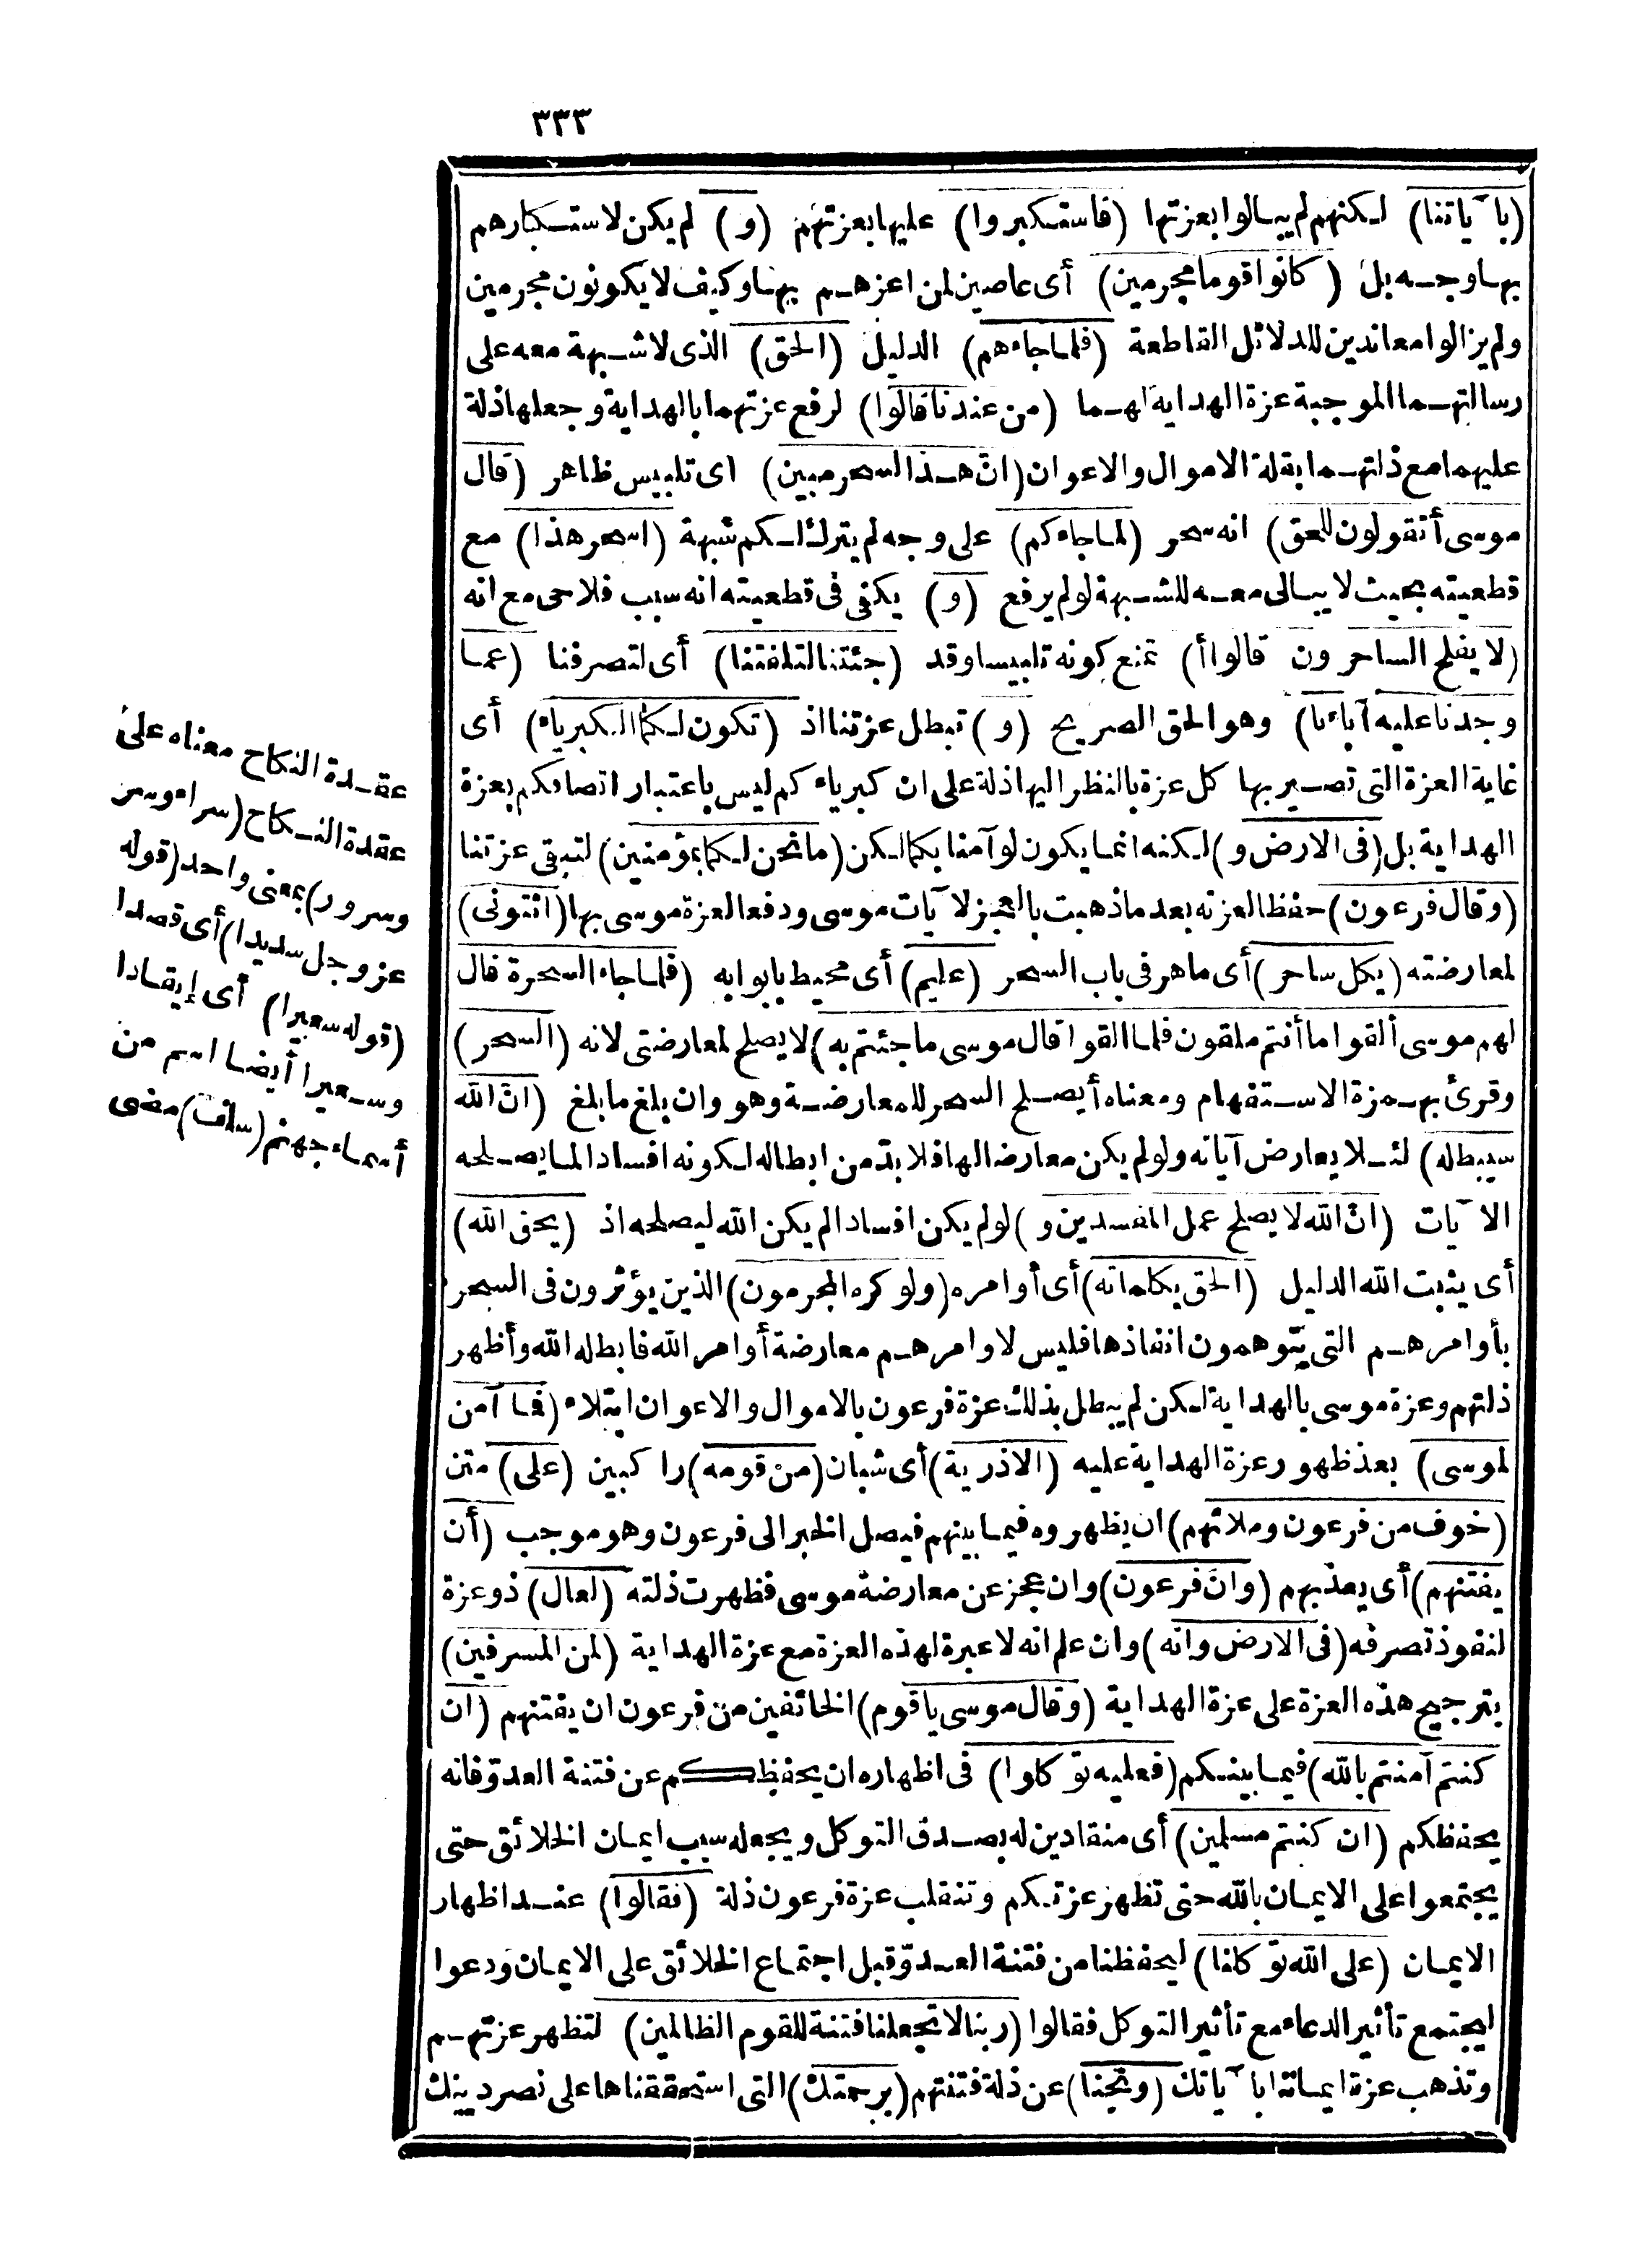 ٣٣٣
(بآياتنا) لكنهم لم يبالوا بعزتها (فاستكبروا) عليها بعزتهم (و) لم يكن لاستكبارهم
بها وجه بل (كانوا قوما مجرمين) أى عاصين لمن اعزهم بها وكيف لا يكونون مجرمين
ولم يزالوا معاندين للدلائل القاطعة (فلما جاءهم) الدليل (الحق) الذى لا شبهة معه على
رسالتهما الموجبة عزة الهداية لهما (من عندنا قالوا) لرفع عزتهما بالهداية وجعلها ذلة
عليهما مع ذلتهما بقلة الاموال والاعوان (انّ هذا لسحر مبين) اى تلبيس ظاهر (قال
موسى أتقولون للحق) انه سحر (لما جاءكم) على وجه لم يترك لكم شبهة (اسحر هذا) مع
قطعيته بحيث لا يبالى معه للشبهة لو لم يرفع (و) يكفى فى قطعيته انه سبب فلاحى مع انه
(لا يفلح الساحرون قالوا أ) تمنع كونه تلبيسا وقد (جئتنا لتلفتنا) أى لتصرفنا (عما
وجدنا عليه آباءنا) وهو الحق الصريح (و) تبطل عزتنا اذ (تكون لكما الكبرياء) أى
غاية العزة التى تصير بها كل عزة بالنظر اليها ذلة على ان كبرياءكم ليس باعتبار اتصافكم بعزة
الهداية بل (فى الارض و) لكنه انما يكون لو آمنا بكما لكن (ما نحن لكما بمؤمنين) لتبقى عزتنا
(وقال فرعون) حفظا لعزته بعد ما ذهبت بالعجز لآيات موسى ودفعا لعزة موسى بها (ائتونى)
لمعارضته (بكل ساحر) أى ماهر فى باب السحر (عليم) أى محيط بابوابه (فلما جاء السحرة قال
لهم موسى ألقوا ما أنتم ملقون فلما القوا قال موسى ما جئتم به) لا يصلح لمعارضتى لانه (السحر)
وقرئ بهمزة الاستفهام ومعناه أيصلح السحر للمعارضة وهو وان بلغ ما بلغ (انّ الله
سيبطله) لئلا يعارض آياته ولو لم يكن معارضا لها فلا بدّ من ابطاله لكونه افسادا لما يصلحه
الآيات (انّ الله لا يصلح عمل المفسدين و) لو لم يكن افسادا لم يكن الله ليصلحه اذ (يحق الله)
أى يثبت الله الدليل (الحق بكلماته) أى أوامره (ولو كره المجرمون) الذين يؤثرون فى السحر
بأوامرهم التى يتوهمون انفاذها فليس لاوامرهم معارضة أوامر الله فابطله الله وأظهر
ذلتهم وعزة موسى بالهداية لكن لم يبطل بذلك عزة فرعون بالاموال والاعوان ابتلاء (فما آمن
لموسى) بعد ظهور عزة الهداية عليه (الا ذرية) أى شبان (من قومه) راكبين (على) متن
(خوف من فرعون وملائهم) ان يظهروه فيما بينهم فيصل الخبر الى فرعون وهو موجب (أن
يفتنهم) أى يعذبهم (وانّ فرعون) وان عجز عن معارضة موسى فظهرت ذلته (لعال) ذو عزة
لنفوذ تصرفه (فى الارض وانه) وان علم انه لا عبرة لهذه العزة مع عزة الهداية (لمن المسرفين)
بترجيح هذه العزة على عزة الهداية (وقال موسى يا قوم) الخائفين من فرعون ان يفتنهم (ان
كنتم آمنتم بالله) فيما بينكم (فعليه توكلوا) فى اظهاره ان يحفظكم عن فتنة العدوّ فانه
يحفظكم (ان كنتم مسلمين) أى منقادين له بصدق التوكل ويجعله سبب ايمان الخلائق حتى
يجتمعوا على الايمان بالله حتى تظهر عزتكم وتنقلب عزة فرعون ذلة (فقالوا) عند اظهار
الايمان (على الله توكلنا) ليحفظنا من فتنة العدوّ قبل اجتماع الخلائق على الايمان ودعوا
ليجتمع تأثير الدعاء مع تأثير التوكل فقالوا (ربنا لا تجعلنا فتنة للقوم الظالمين) لتظهر عزتهم
وتذهب عزة ايماننا بآياتك (ونجنا) عن ذلة فتنتهم (برحمتك) التى استحققناها على نصر دينك
عقدة النكاح معناه على
عقدة النكاح (سراء وسر
وسرور) بمعنى واحد (قوله
عز وجل سديدا) أى قصدا
(قوله سعيرا) أى إيقادا
وسعيرا أيضا اسم من
أسماء جهنم (سلف) مضى